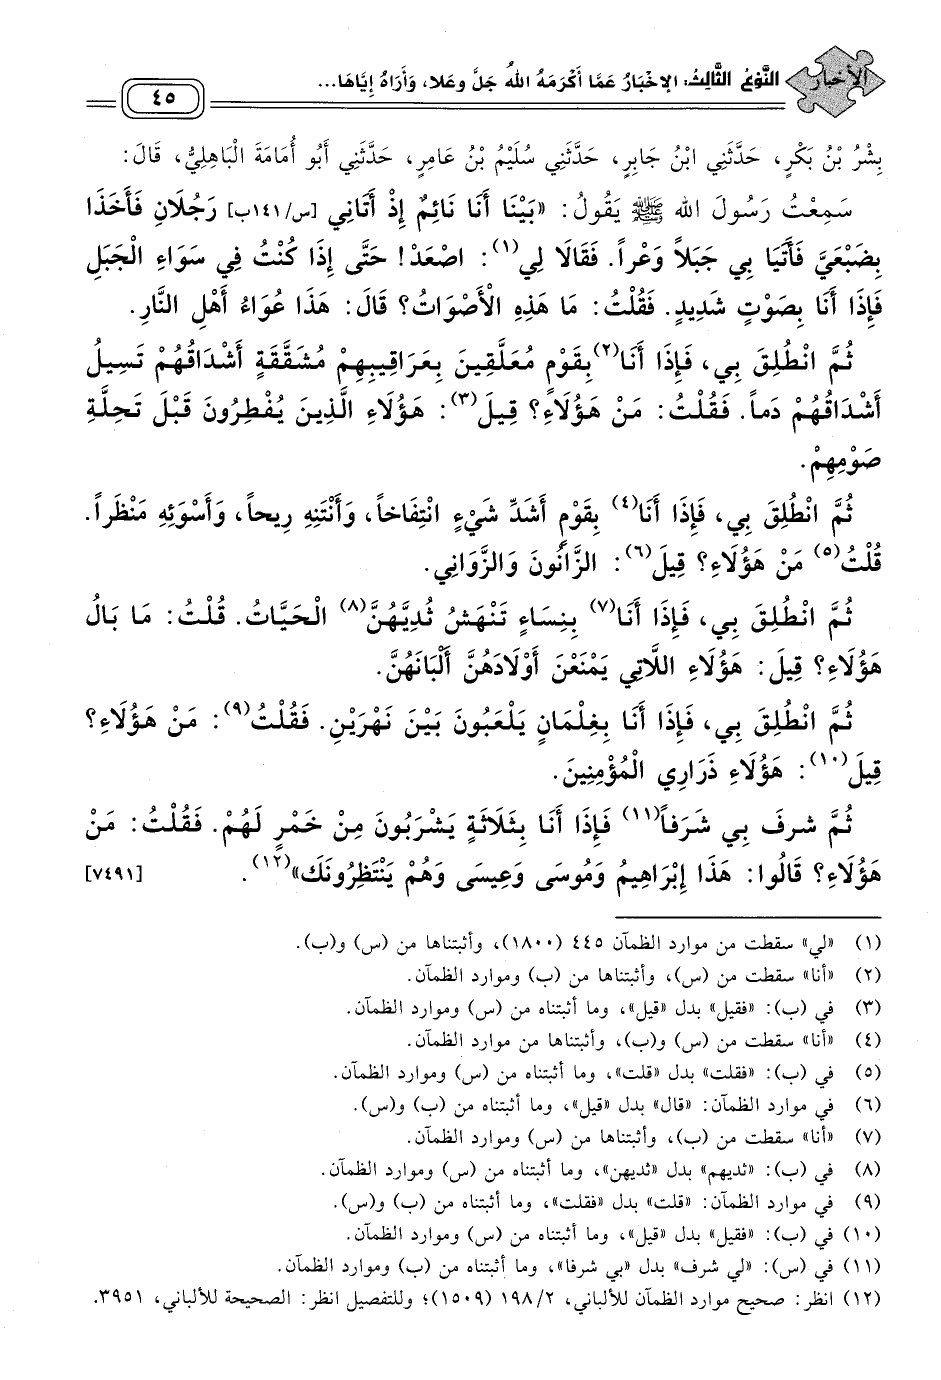 الأخبار
النَّوْعُ الثَّالِثُ: الإِخْبَارُ عَمَّا أَكْرَمَهُ اللهُ جَلَّ وعَلا، وَأَرَاهُ إِيَّاهَا...
٤٥
بِشْرُ بْنُ بَكْرٍ، حَدَّثَنِي ابْنُ جَابِرٍ، حَدَّثَنِي سُلَيْمُ بْنُ عَامِرٍ، حَدَّثَنِي أَبُو أُمَامَةَ الْبَاهِلِيُّ، قَالَ:
سَمِعْتُ رَسُولَ الله ﷺ يَقُولُ: «بَيْنَا أَنَا نَائِمٌ إِذْ أَتَانِي [س/١٤١ب] رَجُلَانِ فَأَخَذَا
بِضَبْعَيَّ فَأَتَيَا بِي جَبَلاً وَعْراً. فَقَالَا لِي(١): اصْعَدْ! حَتَّى إِذَا كُنْتُ فِي سَوَاءِ الْجَبَلِ
فَإِذَا أَنَا بِصَوْتٍ شَدِيدٍ. فَقُلْتُ: مَا هَذِهِ الْأَصْوَاتُ؟ قَالَ: هَذَا عُوَاءُ أَهْلِ النَّارِ.
ثُمَّ انْطُلِقَ بِي، فَإِذَا أَنَا(٢) بِقَوْمٍ مُعَلَّقِينَ بِعَرَاقِيبِهِمْ مُشَقَّقَةٍ أَشْدَاقُهُمْ تَسِيلُ
أَشْدَاقُهُمْ دَماً. فَقُلْتُ: مَنْ هَؤُلَاءِ؟ قِيلَ(٣): هَؤُلَاءِ الَّذِينَ يُفْطِرُونَ قَبْلَ تَحِلَّةِ
صَوْمِهِمْ.
ثُمَّ انْطُلِقَ بِي، فَإِذَا أَنَا(٤) بِقَوْمٍ أَشَدِّ شَيْءٍ انْتِفَاخاً، وَأَنْتَنِهِ رِيحاً، وَأَسْوَئِهِ مَنْظَراً.
قُلْتُ(٥) مَنْ هَؤُلَاءِ؟ قِيلَ(٦): الزَّانُونَ وَالزَّوَانِي.
ثُمَّ انْطُلِقَ بِي، فَإِذَا أَنَا(٧) بِنِسَاءٍ تَنْهَشُ ثُدِيَّهُنَّ(٨) الْحَيَّاتُ. قُلْتُ: مَا بَالُ
هَؤُلَاءِ؟ قِيلَ: هَؤُلَاءِ اللَّاتِي يَمْنَعْنَ أَوْلَادَهُنَّ أَلْبَانَهُنَّ.
ثُمَّ انْطُلِقَ بِي، فَإِذَا أَنَا بِغِلْمَانٍ يَلْعَبُونَ بَيْنَ نَهْرَيْنِ. فَقُلْتُ(٩): مَنْ هَؤُلَاءِ؟
قِيلَ(١٠): هَؤُلَاءِ ذَرَارِي الْمُؤْمِنِينَ.
ثُمَّ شرفَ بِي شَرَفاً(١١) فَإِذَا أَنَا بِثَلَاثَةٍ يَشْرَبُونَ مِنْ خَمْرٍ لَهُمْ. فَقُلْتُ: مَنْ
هَؤُلَاءِ؟ قَالُوا: هَذَا إِبْرَاهِيمُ وَمُوسَى وَعِيسَى وَهُمْ يَنْتَظِرُونَكَ»(١٢). [٧٤٩١]
(١) «لي» سقطت من موارد الظمآن ٤٤٥ (١٨٠٠)، وأثبتناها من (س) و(ب).
(٢) «أنا» سقطت من (س)، وأثبتناها من (ب) وموارد الظمآن.
(٣) في (ب): «فقيل» بدل «قيل»، وما أثبتناه من (س) وموارد الظمآن.
(٤) «أنا» سقطت من (س) و(ب)، وأثبتناها من موارد الظمآن.
(٥) في (ب): «فقلت» بدل «قلت»، وما أثبتناه من (س) وموارد الظمآن.
(٦) في موارد الظمآن: «قال» بدل «قيل»، وما أثبتناه من (ب) و(س).
(٧) «أنا» سقطت من (ب)، وأثبتناها من (س) وموارد الظمآن.
(٨) في (ب): «ثديهم» بدل «ثديهن»، وما أثبتناه من (س) وموارد الظمآن.
(٩) في موارد الظمآن: «قلت» بدل «فقلت»، وما أثبتناه من (ب) و(س).
(١٠) في (ب): «فقيل» بدل «قيل»، وما أثبتناه من (س) وموارد الظمآن.
(١١) في (س): «لي شرف» بدل «بي شرفا»، وما أثبتناه من (ب) وموارد الظمآن.
(١٢) انظر: صحيح موارد الظمآن للألباني، ١٩٨/٢ (١٥٠٩)؛ وللتفصيل انظر: الصحيحة للألباني، ٣٩٥١.